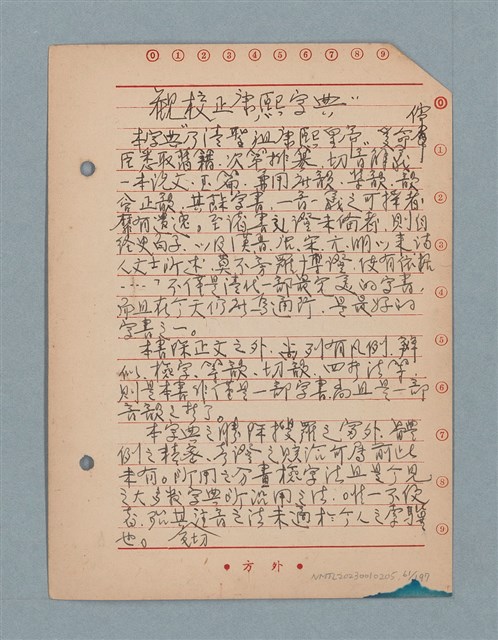 ⓪ ① ② ③ ④ ⑤ ⑥ ⑦ ⑧ ⑨
觀校正康熙字典
⓪ ① ② ③ ④ ⑤ ⑥ ⑦ ⑧ ⑨
本字典乃清聖祖康熙
臣悉取舊籍，次第排纂，切音解義
一本說文、玉篇，兼用廣韻、集韻、韻
會、正韻，其餘字書，一音一義之可採者，
靡有遺逸。至諸書引證未備者，則自
經史百子，以及漢晉唐、宋元明以來詩
人文士所述，莫不旁羅博證，使有依據
……不僅是清代一部最完美的字書，
而且在今天仍
是最好的
字書之一。
本書除正文之外，尚列有凡例、辨
似、檢字、等韻、切韻、四聲法等，
則是本書非僅是一部字書，而且是一部
音韻之書了。
本字典之勝，除搜羅之富外，體
例之精密，考證之
前此
未有。所用之分書檢字法且是今見
之大多數字典所沿用之法。唯一不便
者，
其注音之法未適於今人之
也。
• 方外 •
NMTL20230010205 61/197